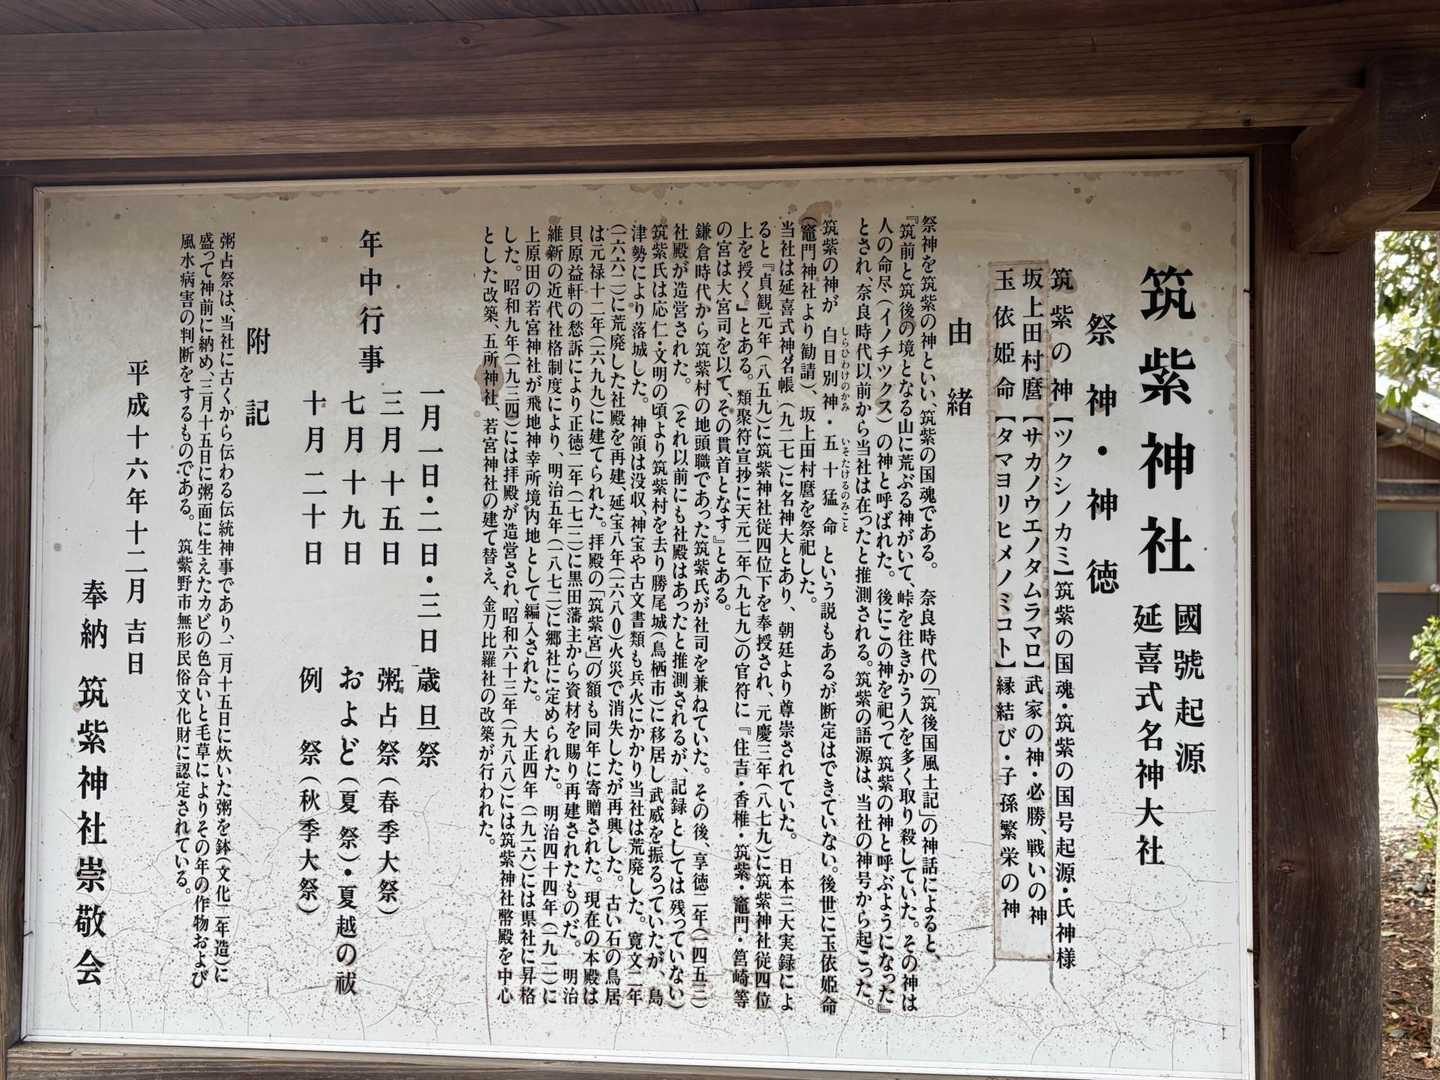 筑紫神社
國號起源
延喜式名神大社
祭神・神徳
筑紫の神【ツクシノカミ】筑紫の国魂・筑紫の国号起源・氏神様
坂上田村麿【サカノウエノタムラマロ】武家の神・必勝、戦いの神
玉依姫命【タマヨリヒメノミコト】縁結び・子孫繁栄の神
由緒
祭神を筑紫の神といい、筑紫の国魂である。 奈良時代の「筑後国風土記」の神話によると、
『筑前と筑後の境となる山に荒ぶる神がいて、峠を往きかう人を多く取り殺していた。その神は
人の命尽、(イノチツクス)の神と呼ばれた。後にこの神を祀って筑紫の神と呼ぶようになった』
とされ 奈良時代以前から当社は在ったと推測される。筑紫の語源は、当社の神号から起こった。
筑紫の神が 白日別神・五十猛命 という説もあるが断定はできていない。後世に玉依姫命
しらひわけのかみ いそたけるのみこと
(竈門神社より勧請)、坂上田村麿を祭祀した。
当社は延喜式神名帳(九二七)に名神大とあり、朝廷より尊崇されていた。 日本三大実録によ
ると『貞観元年(八五九)に筑紫神社従四位下を奉授され、元慶三年(八七九)に筑紫神社従四位
上を授く』とある。類聚符宣抄に天元二年(九七九)の官符に『住吉・香椎・筑紫・竈門・筥崎等
の宮は大宮司を以て、その貫首となす』とある。
鎌倉時代から筑紫村の地頭職であった筑紫氏が社司を兼ねていた。その後、享徳二年(一四五三)
社殿が造営された。(それ以前にも社殿はあったと推測されるが、記録としては残っていない)
筑紫氏は応仁・文明の頃より筑紫村を去り勝尾城(鳥栖市)に移居し武威を振るっていたが、島
津勢により落城した。神領は没収、神宝や古文書類も兵火にかかり当社は荒廃した。寛文二年
(一六六二)に荒廃した社殿を再建、延宝八年(一六八0)火災で消失したが再興した。古い石の鳥居
は元禄十二年(一六九九)に建てられた。拝殿の「筑紫宮」の額も同年に寄贈された。現在の本殿は
貝原益軒の愁訴により正徳二年(一七一二)に黒田藩主から資材を賜り再建されたものだ。明治
維新の近代社格制度により、明治五年(一八七二)に郷社に定められた。明治四十四年(一九一一)に
上原田の若宮神社が飛地神幸所境内地として編入された。 大正四年(一九一六)には県社に昇格
した。昭和九年(一九三四)には拝殿が造営され、昭和六十三年(一九八八)には筑紫神社幣殿を中心
とした改築、五所神社、若宮神社の建て替え、金刀比羅社の改築が行われた。
年中行事
一月一日・二日・三日 歳旦祭
三月十五日 粥占祭(春季大祭)
七月十九日 およど(夏祭)・夏越の祓
十月二十日 例祭(秋季大祭)
附記
粥占祭は、当社に古くから伝わる伝統神事であり、二月十五日に炊いた粥を鉢(文化二年造)に
盛って神前に納め、三月十五日に粥面に生えたカビの色合いと毛草によりその年の作物および
風水病害の判断をするものである。 筑紫野市無形民俗文化財に認定されている。
平成十六年十二月吉日
奉納 筑紫神社崇敬会